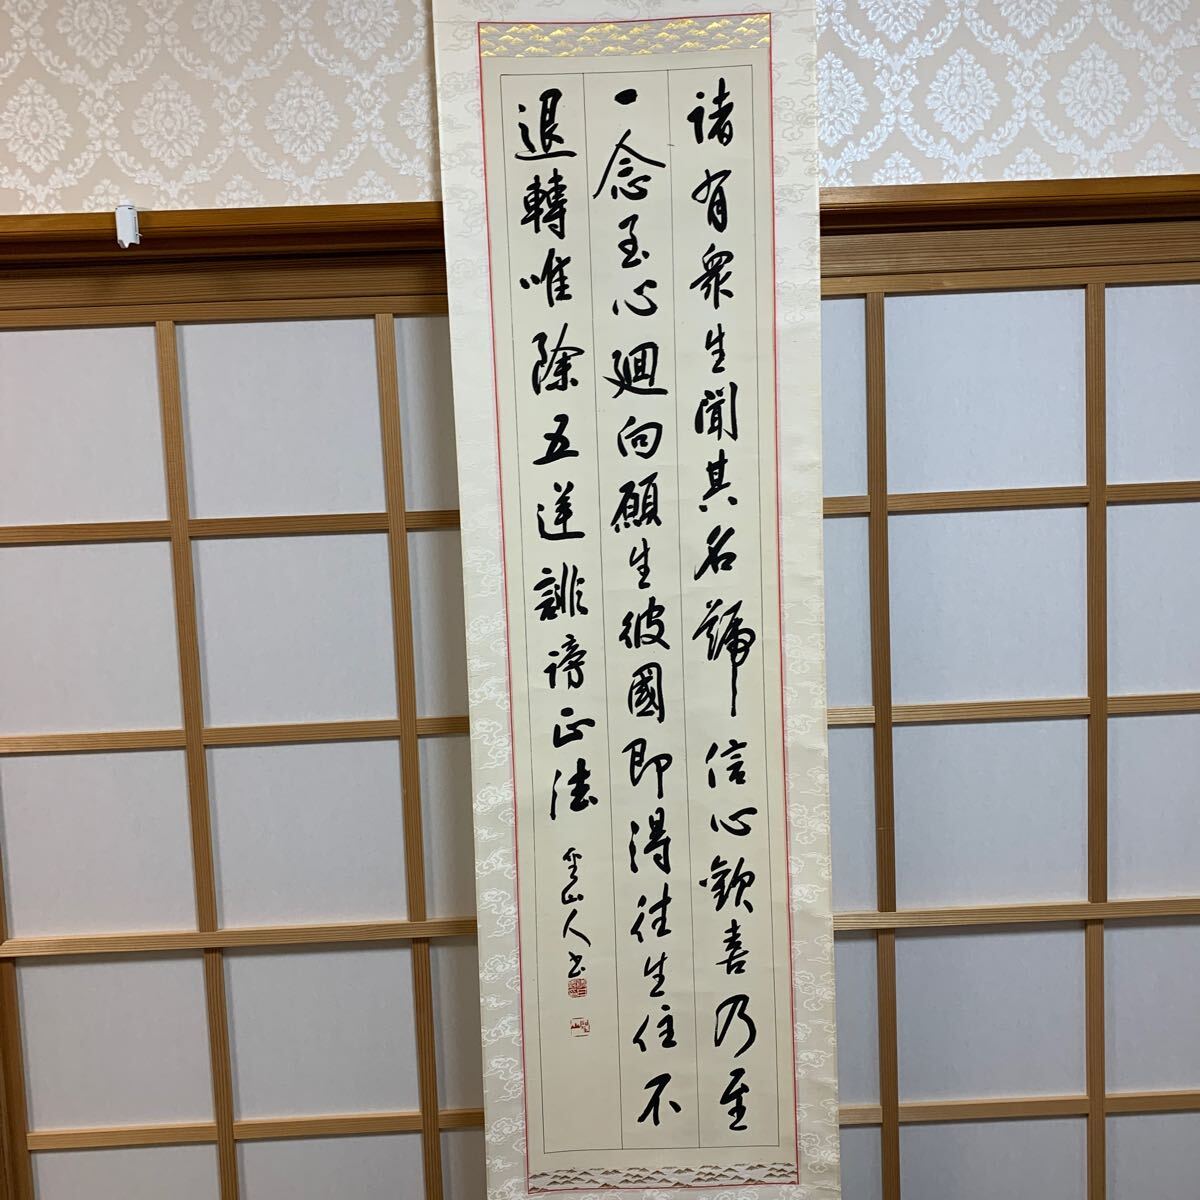 諸有衆生聞其名號信心歓喜乃至
一念至心廻向願生彼國即得往生住不
退轉唯除五逆誹謗正法
山人書